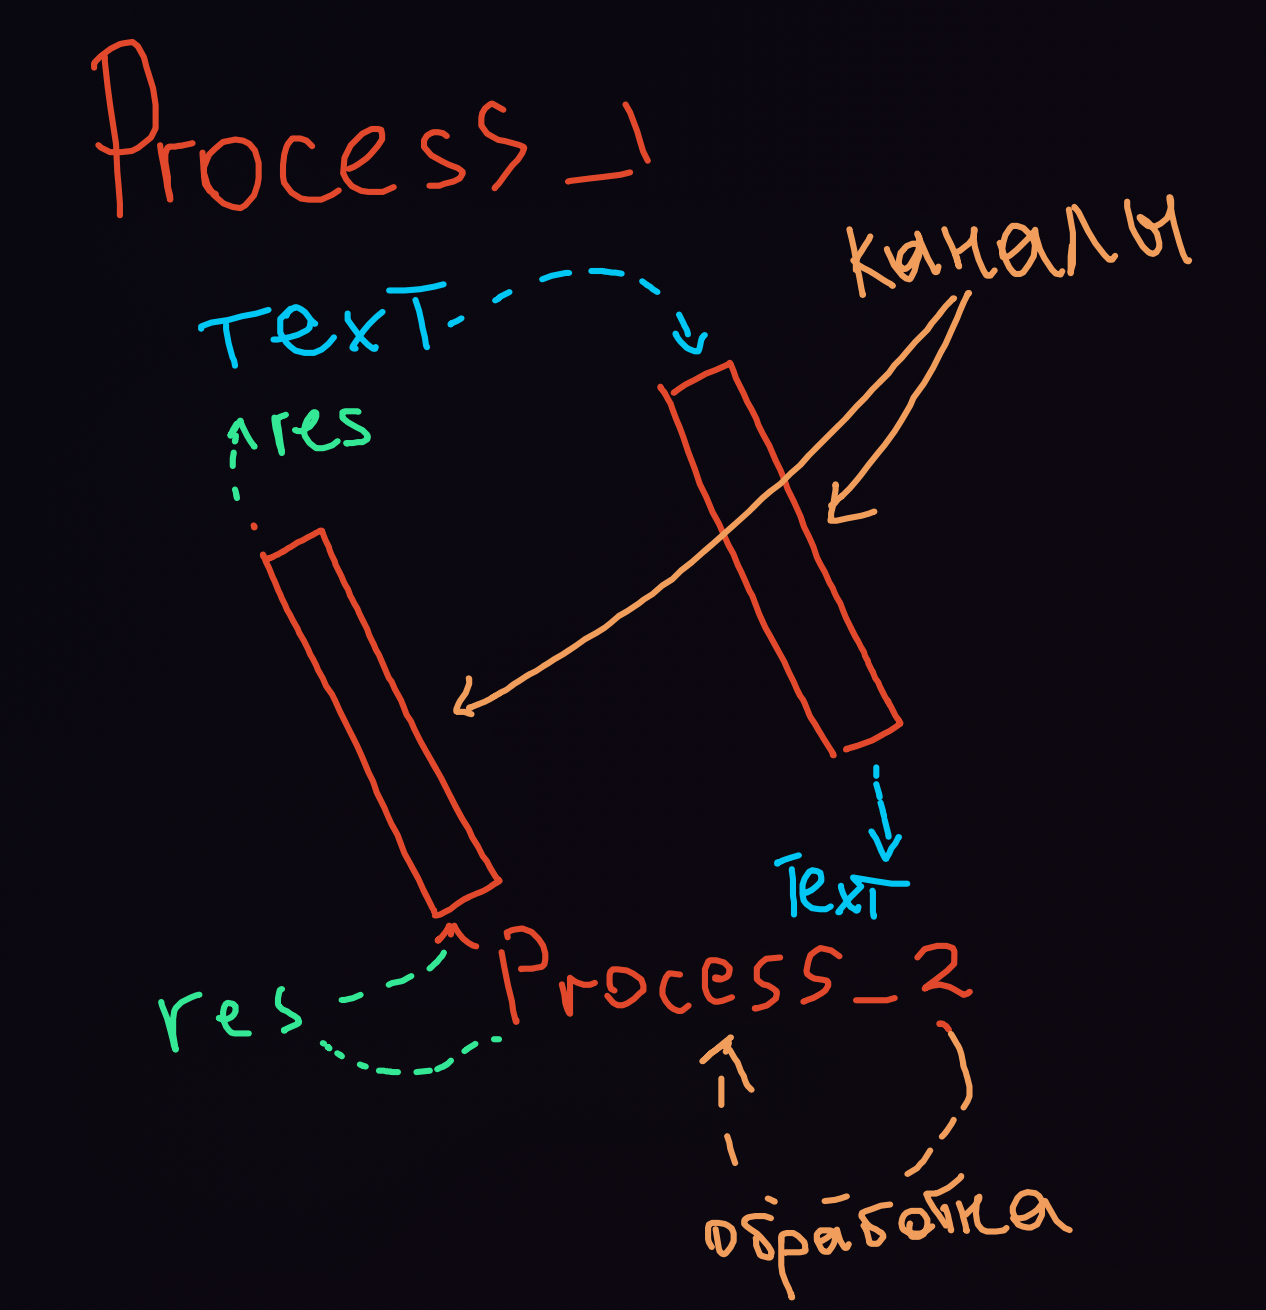 Process_1
каналы
Text
res
Text
Process_2
res
обработка